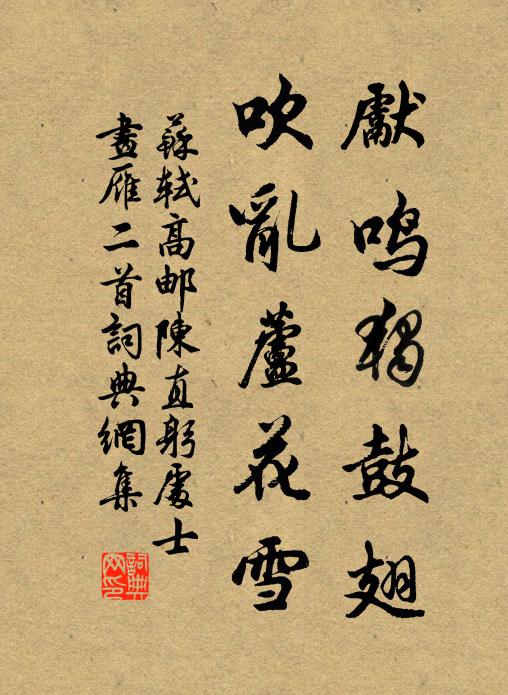 獻鳴獨鼓翅
吹亂蘆花雪
蘇軾高邮陳直躬處士
畫雁二首詞典網集
詞典网印